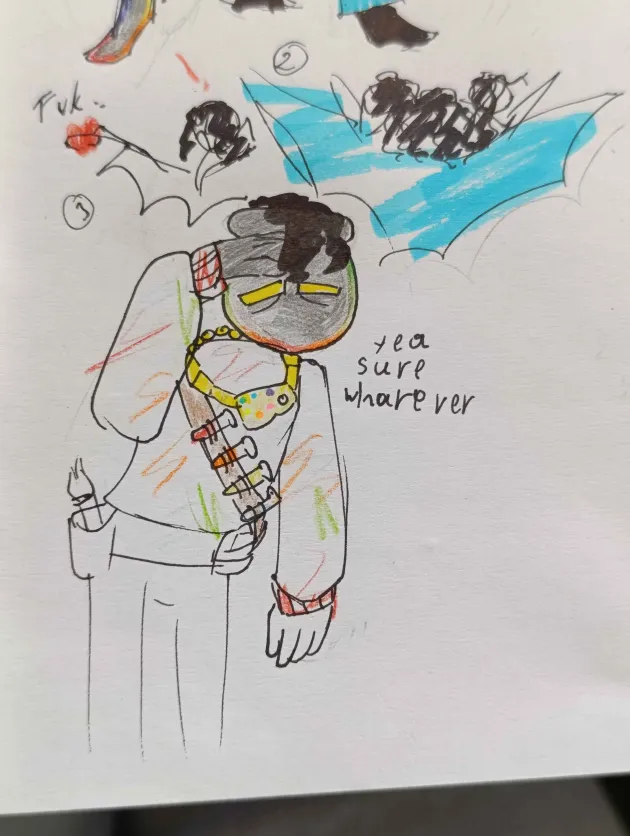 2
Fuk..
3
yea
sure
wharever